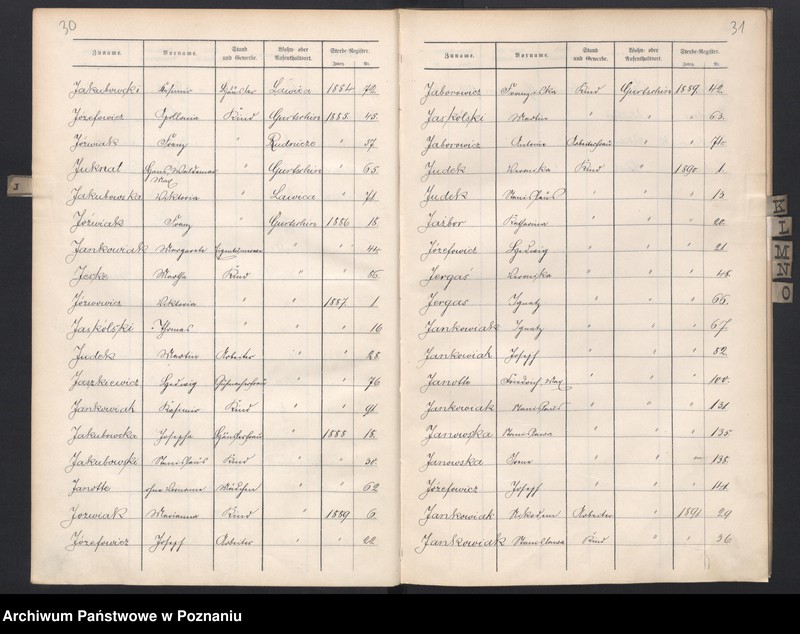 30
Zuname. Vorname. Stand und Gewerbe. Wohn- oder Aufenthaltsort. Sterbe-Register. Jahrg. Nr.
Jakubowski Kasimir Häusler Lawica 1884 72.
Józefowicz Apollonia Kind Gurtschin 1885 45.
Jóźwiak Franz " Rudnicze " 57
Juknal Hans Waldemar Max " Gurtschin " 65.
Jakubowska Viktoria " Lawica " 71
Joźwiak Franz " Gurtschin 1886 18.
Jankowiak Margarete " " 44.
Jeske Martha Kind " " 86
Józwowicz Viktoria " " 1887 1
Jaskólski Thomas " " " 16
Judek Martin Arbeiter " " 28.
Jaszkiewicz Hedwig " " 76
Jankowiak Kasimir Kind " " 91
Jakubowska Josepha Häuslerfrau " 1888 18.
Jakubowski Stanislaus Kind " " 30.
Janotte ohne Vornamen Mädchen " " 62
Jozwiak Marianna Kind " 1889 6.
Józefowicz Josef Arbeiter " " 22
31
Zuname. Vorname. Stand und Gewerbe. Wohn- oder Aufenthaltsort. Sterbe-Register. Jahrg. Nr.
Jaborowicz Franziska Kind Gurtschin 1889 42.
Jaskólski Martin " " " 63.
Jaborowicz Antonie Arbeiterfrau " " 74.
Judek Veronika Kind " 1890 1.
Judek Stanislaus " " " 13.
Jaźbor Katharina " " " 20.
Józefowicz Hedwig " " " 21.
Jergaś Veronika " " " 48.
Jergas Ignatz " " " 66.
Jankowiak Ignatz " " " 67.
Jankowiak Josef " " " 82.
Janotte Friedrich Max " " " 100.
Jankowiak Stanislaus " " " 131.
Janowska Stanislawa " " " 135.
Janowska Irene " " 138.
Józefowicz Josef " " " 141.
Jankowiak Nikodem Arbeiter " 1891 29
Jankowiak Stanislawa Kind " " 36
J
K
L
M
N
O
Archiwum Państwowe w Poznaniu